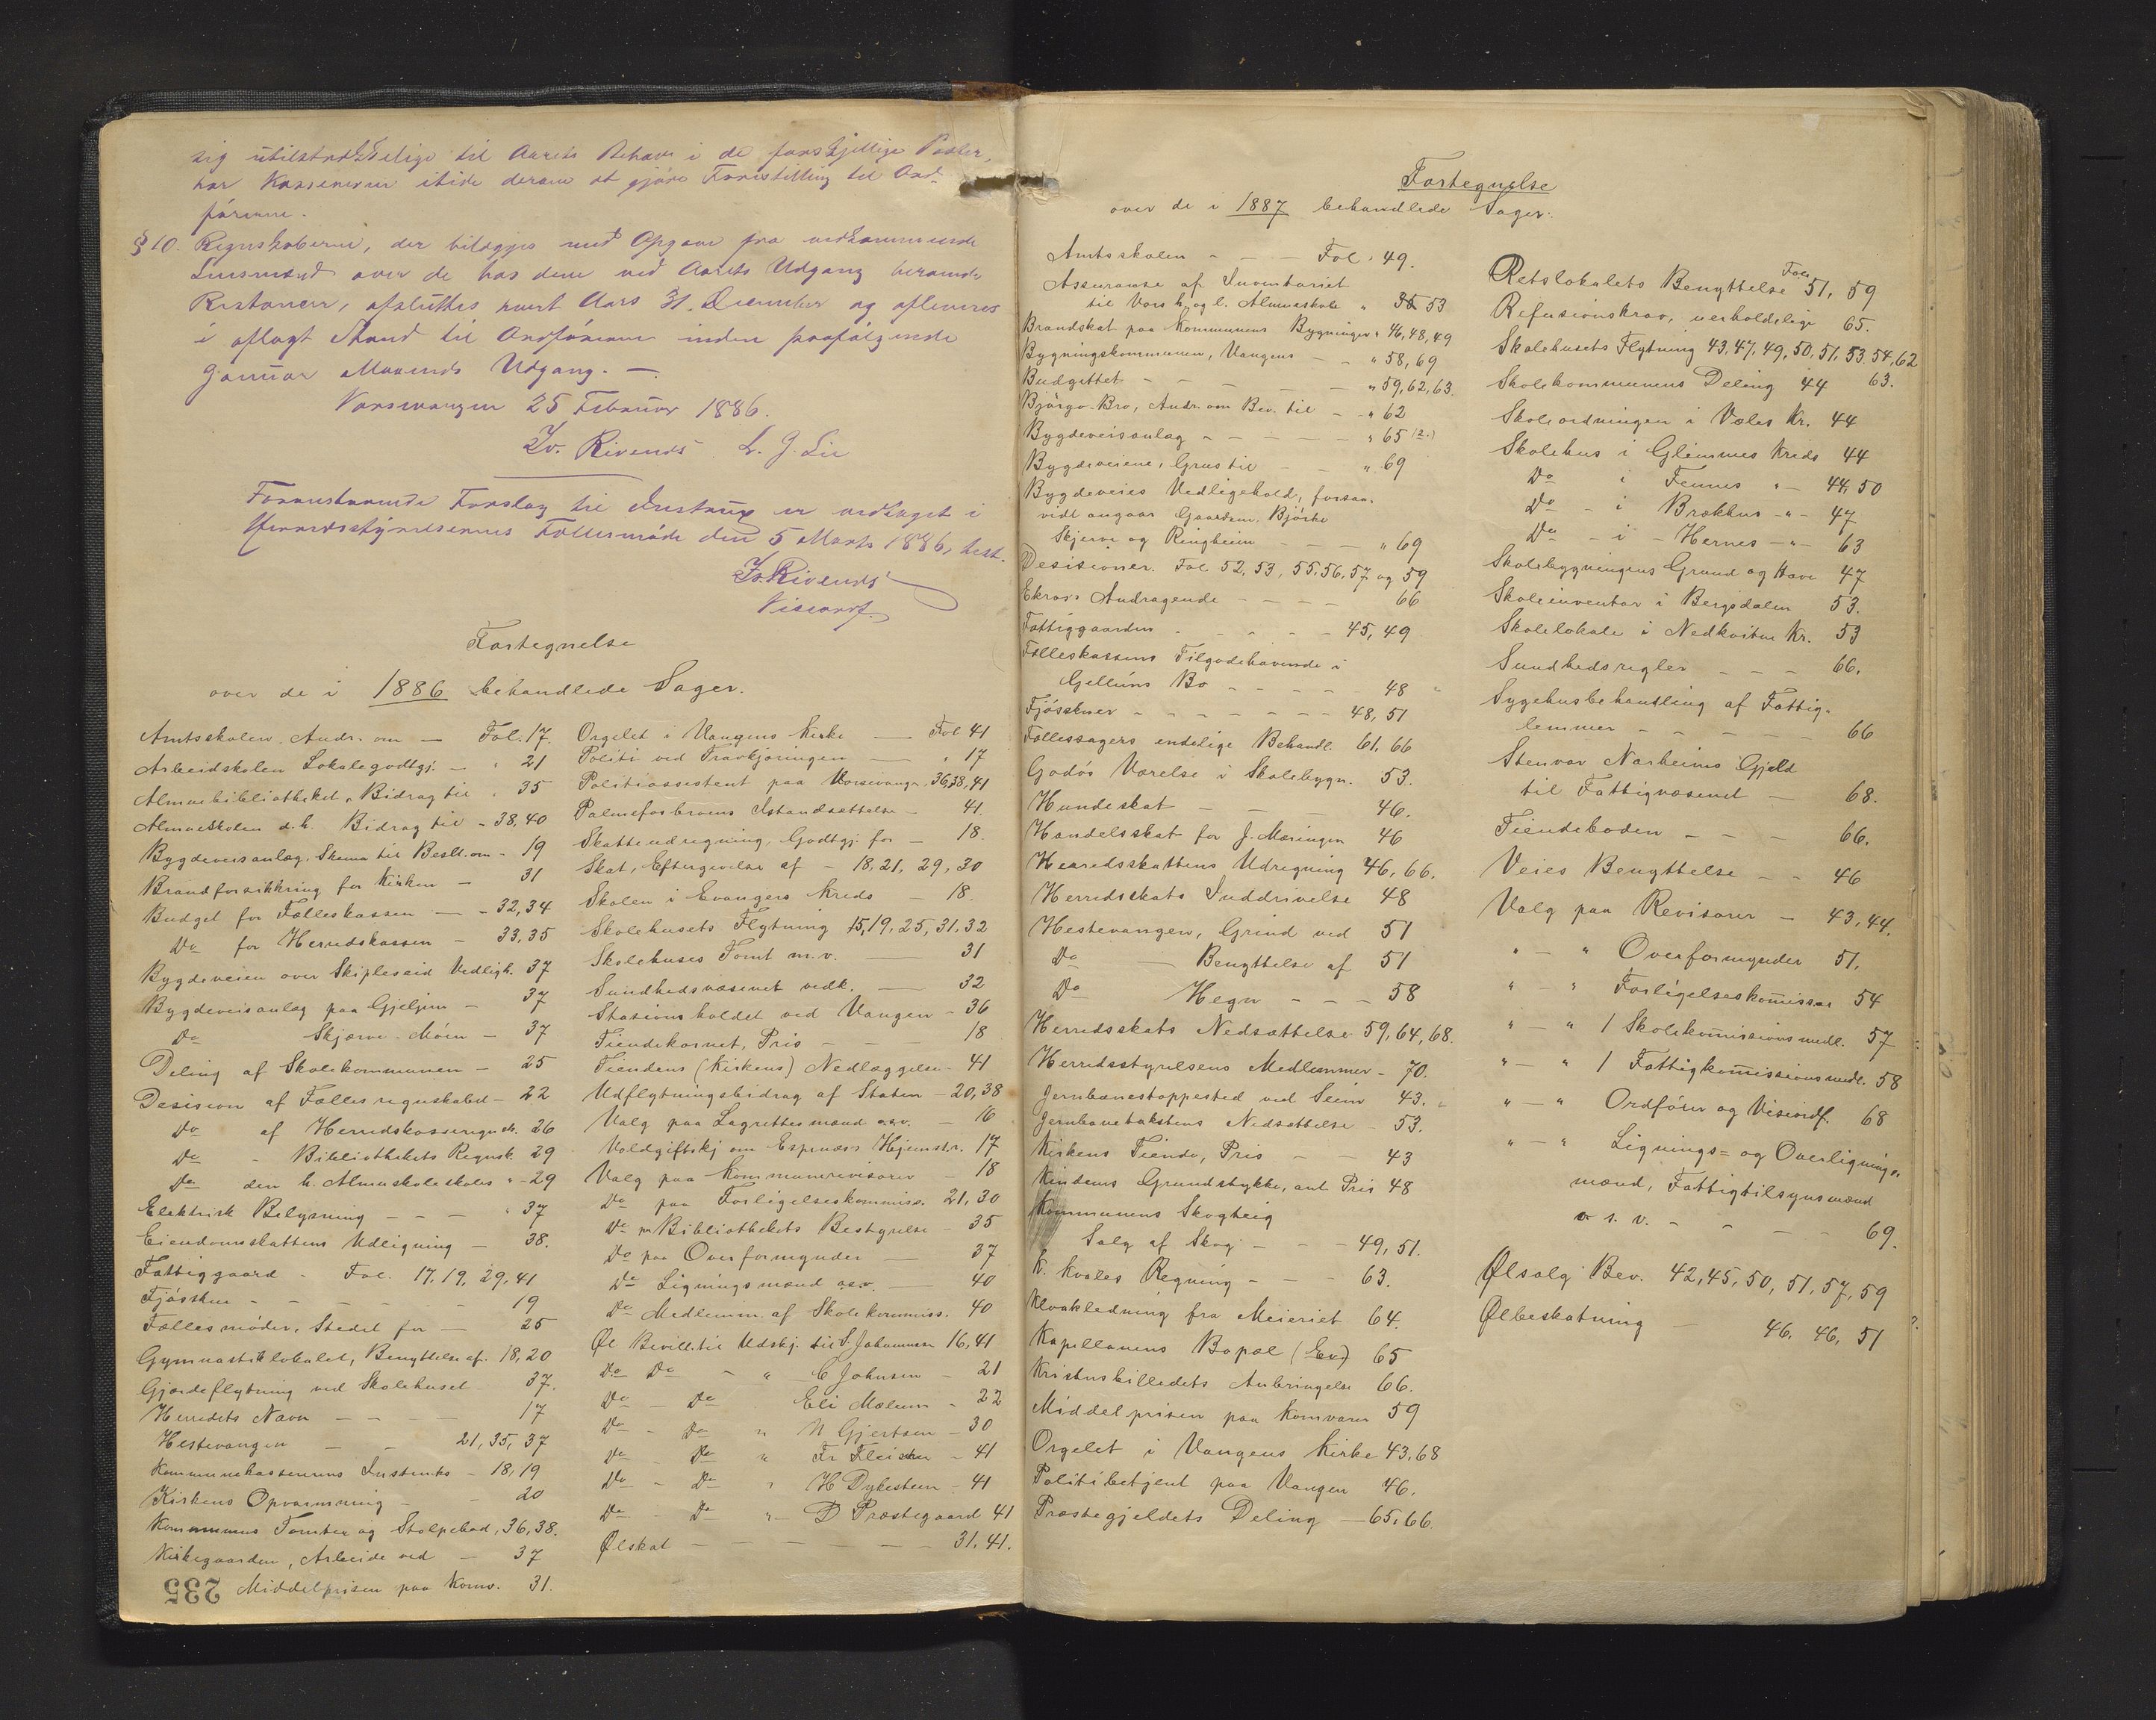 sig utilstrækkelige til Aarets Behov i de forskjellige Poster,
har Kassereren itide derom at gjøre Forestilling til Ord-
føreren.
§ 10. Regnskaberne, der bilægges med Opgave fra vedkommende
Lensmænd over de hos dem ved Aarets Udgang beroende
Restancer, afsluttes hvert Aars 31. December og afleveres
i aflagt Stand til Ordføreren inden paafølgende
Januar Maaneds Udgang. —
Vossevangen 25 Februar 1886.
Iv. Rivenes L. G. Lie
Foranstaaende Forslag til Instrux er vedtaget i
Herredsstyrelsernes Fællesmøde den 5 Marts 1886,
I. Rivenes
Viseordf.
Fortegnelse
over de i 1886 behandlede Sager.
Amtsskolen, Andr. om — Fol. 17.
Arbeidskolen Lokalegodtgj. — " 21
Almuebibliotheket, Bidrag til " 35
Almueskolen d. h. Bidrag til - 38, 40
Bygdeveisanlæg, Skema til Besl. om - 19
Brandforsikkring for Kirken — 31
Budget for Fælleskassen — - 32, 34
Do for Herredskassen - 33, 35
Bygdeveien over Skipleseid Vedligh. 37
Bygdeveisanlæg paa Gjeljem - 37
Do Skjerve-Møen - 37
Deling af Skolekommunen - 25
Desision af Fællesregnskabet - 22
Do af Herredskasseregnsk. 26
Do - Bibliothekets Regnsk. 29
Do den h. Almueskoleskoles " - 29
Elektrisk Belysning - - - " 37
Eiendomsskattens Udligning — 38.
Fattiggaard - Fol. 17, 19, 29, 41
Fjøssken - - - - - 19
Fællesmøder, Stedet for — 25
Gymnastiklokalet, Benyttelse af. 18, 20
Gjærdeflytning ved Skolehuset 37.
Herredets Navn - - - 17
Hestevangen - - 21, 35, 37
Kommunekassererens Instruks - 18, 19
Kirkens Opvarmning - - 20
Kommunens Tomter og Stolpebod, 36, 38.
Kirkegaarden, Arbeide ved - 37
235 Middelprisen paa Kornv. 31.
Orgelet i Vangens Kirke — Fol 41
Politi ved Travkjøringen — " 17
Politiassistent paa Vossevangn. 36, 38, 41
Palmeforbroens Istandsættelse - 41.
Skatteudregning, Godtgj. for - 18.
Skat, Eftergivelse af - 18, 21, 29, 30
Skolen i Evangers Kreds - 18.
Skolehusets Flytning 15, 19, 25, 31, 32
Skolehuses Tomt m. v. — 31
Sundhedsvæsenet vedk. — 32
Stasionsholdet ved Vangen - 36
Tiendekornet, Pris - - - 18
Tiendens (Kirkens) Nedlæggelse - 41
Udflytningsbidrag af Staten - 20, 38
Valg paa Lagrettesmænd osv. - 16
Voldgiftskj om Espenæs Hjemstr. 17
Valg paa Kommunerevisorer - 18
Do paa Forligelseskommiss. 21, 30
Do p. Bibliothekets Bestyrelse - 35
Do paa Overformynder — 37
Do Ligningsmænd osv. — 40
Do Medlemm. af Skolekommiss. 40
Øl Bevill. til Udskj. til S. Johannesen 16, 41
Do Do - " C Johnsen - 21
Do - Do Eli Mælum - 22
Do - Do " N Gjertsen - 30
Do - Do " Fr Fleischer - 41
Do - Do " H Dykesteen - 41
Do - Do " - D Præstegaard 41
Ølskat - - - - - - 31, 41.
Fortegnelse
over de i 1887 behandlede Sager:
Amtsskolen - - - Fol. 49.
Assuranse af Inventariet
til Vors h. og l. Almueskole " 35 53
Brandskat paa Kommunens Bygninger " 46, 48, 49
Bygningskommunen, Vangens - - " 58, 69
Budgettet - - - - - " 59, 62, 63
Bjørgo Bro, Andr. om Bev. til - - " 62
Bygdeveisanlæg - - - - - " 65 (2.)
Bygdeveiene, Grus til - - " 69
Bygdeveies Vedligehold, forsaa-
vidt angaar Gaardene Bjørke
Skjerve og Ringheim - - - " 69
Desisioner. Fol 52, 53, 55, 56, 57 og 59
Ekroos Andragende - - - - 66
Fattiggaarden - - - - - 45, 49
Fælleskassens Tilgodehavende i
Gelleins Bo - - - - - 48
Fjøsskner - - - - - - - 48, 51
Fællessagers endelige Behandl. 61, 66
Godøs Værelse i Skolebygn. 53.
Hundeskat - - - 46.
Handelsskat for J. Mæringen 46
Herredsskattens Udregning 46, 66.
Herredsskats Inddrivelse 48
Hestevangen, Grind ved 51
Do — Benyttelse af 51
Do Hegn - - - 58
Herredsskats Nedsættelse 59, 64, 68.
Herredsstyrelsens Medlemmer - 70.
Jernbanestoppested ved Seim 43.
Jernbanetakstens Nedsættelse - 53.
Kirkens Tiende, Pris - - 43
Kindems Grundstykke, ant. Pris 48
Kommunens Skogteig
Salg af Skog - - - 49, 51.
K. Kvales Regning - - - 63.
Kloakledning fra Meieriet 64.
Kapellanens Bopæl (Ev) 65
Kristusbilledets Anbringelse 66.
Middelprisen paa Kornvarer 59
Orgelet i Vangens Kirke 43, 68
Politibetjent paa Vangen 46.
Præstegjeldets Deling — 65, 66
Retslokalets Benyttelse Fol. 51, 59
Refusionskrav, uerholdelige 65.
Skolehusets Flytning 43, 47, 49, 50, 51, 53, 54, 62
63.
Skolekommunens Deling 44
Skoleordningen i Væles Kr. 44
Skolehus i Glimmes Kreds 44
Do i Fennes " - 44, 50
Do - i Brækhus - " - 47
Do - i - Hernes - " - 63
Skolebygningens Grund og Have 47
Skoleinventar i Bergsdalen 53.
Skolelokale i Nedkvitne Kr. 53
Sundhedsregler - - - 66.
Sygehusbehandling af Fattig-
lemmer - - - - - 66
Stenvor Narheims Gjeld
til Fattigvæsenet — 68.
Tiendeboden - - - 66.
Veies Benyttelse - - 46
Valg paa Revisorer - 43, 44.
" - " Overformynder 51.
" - " Forligelseskomissær 54
" - " 1 Skolekomissionsmedl. 57
" - " 1 Fattigkomissionsmedl. 58
" - " Ordfører og Viseordf. 68
" - " Lignings= og Overlignings-
mænd, Fattigtilsynsmænd
o. s. v. - - - - 69.
Ølsalg Bev. 42, 45, 50, 51, 57, 59
Ølbeskatning — 46, 46, 51